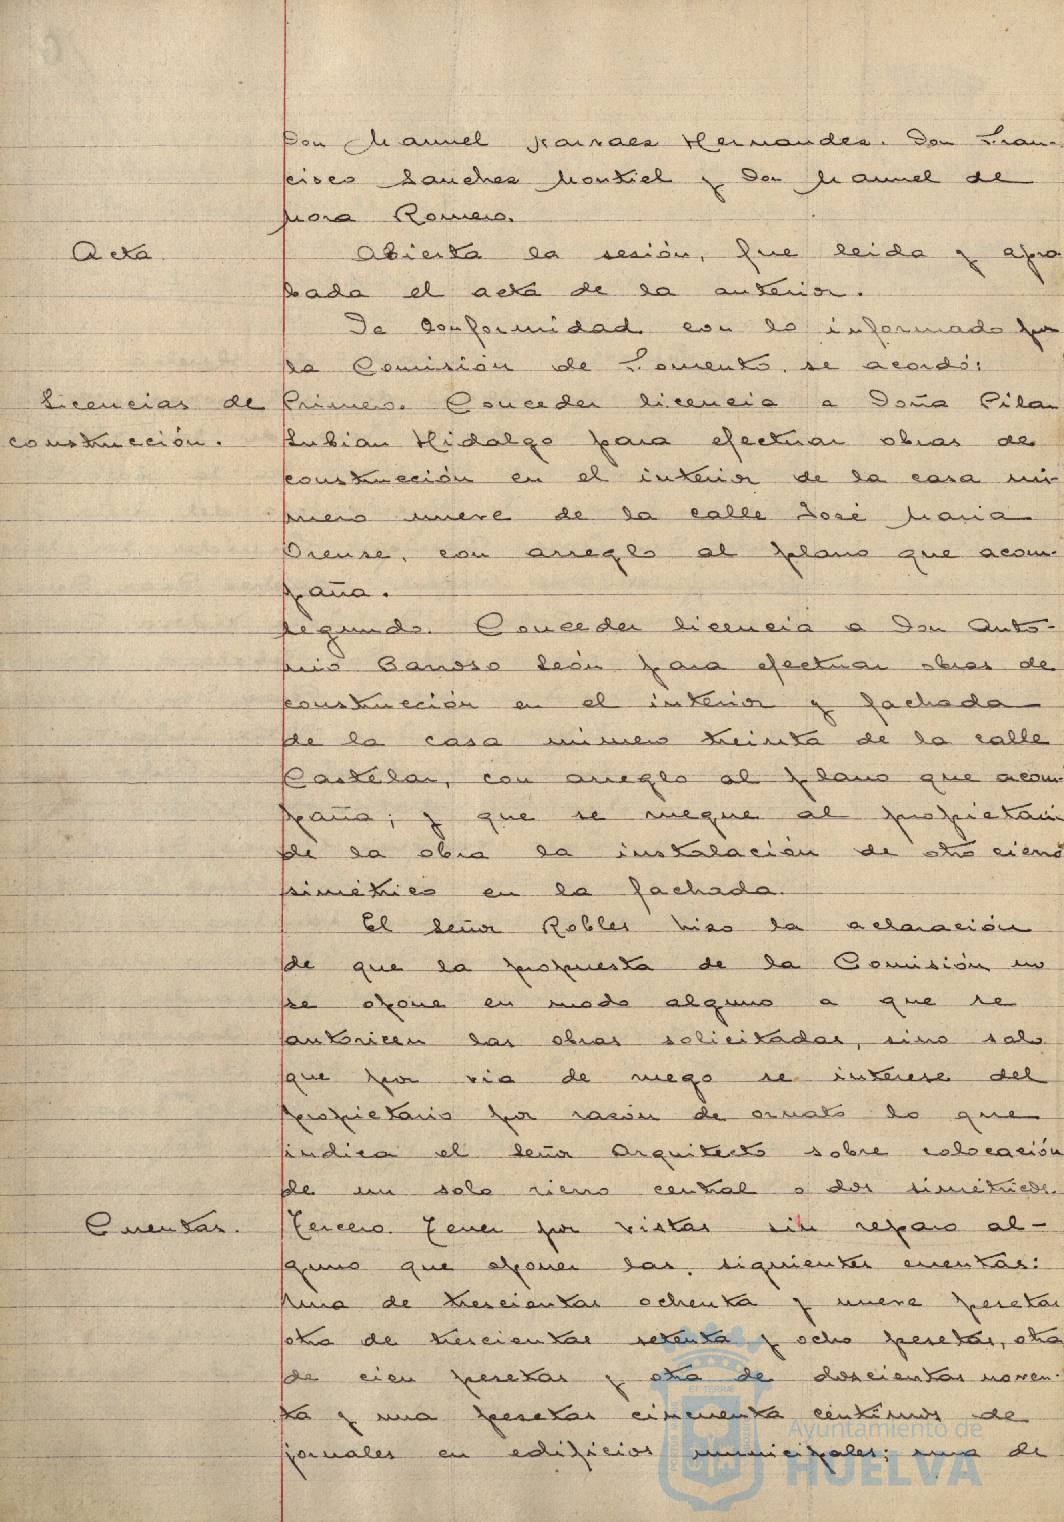 Don Manuel Narvaez Hernandez. Don Fran-
cisco Sanchez Montiel y Don Manuel de
Mora Romero.
Acta. Abierta la sesión, fue leida y apro
bada el acta de la anterior.
De conformidad con lo informado por
la Comisión de Fomento, se acordó:
Licencias de Primero. Conceder licencia a Doña Pilar
construcción. Lubian Hidalgo para efectuar obras de
construcción en el interior de la casa nú-
mero nueve de la calle José Maria
Orense, con arreglo al plano que acom-
paña.
Segundo. Conceder licencia a Don Anto-
nio Barroso León para efectuar obras de
construcción en el interior y fachada
de la casa número treinta de la calle
Castelar, con arreglo al plano que acom-
paña; y que se ruegue al propietario
de la obra la instalación de otro cierro
simétrico en la fachada.
El Señor Robles hizo la aclaración
de que la propuesta de la Comisión no
se opone en modo alguno a que se
autoricen las obras solicitadas, sino solo
que por via de ruego se interese del
propietario por razón de ornato lo que
indica el Señor Arquitecto sobre colocación
de un solo cierro central o dos simétricos.
Cuentas. Tercero. Tener por vistas sin reparo al-
guno que oponer las siguientes cuentas:
Una de trescientas ochenta y nueve pesetas
otra de trescientas setenta y ocho pesetas, otra
de cien pesetas y otra de doscientas noven-
ta y una pesetas cincuenta céntimos de
jornales en edificios municipales; una de
Ayuntamiento de
HUELVA